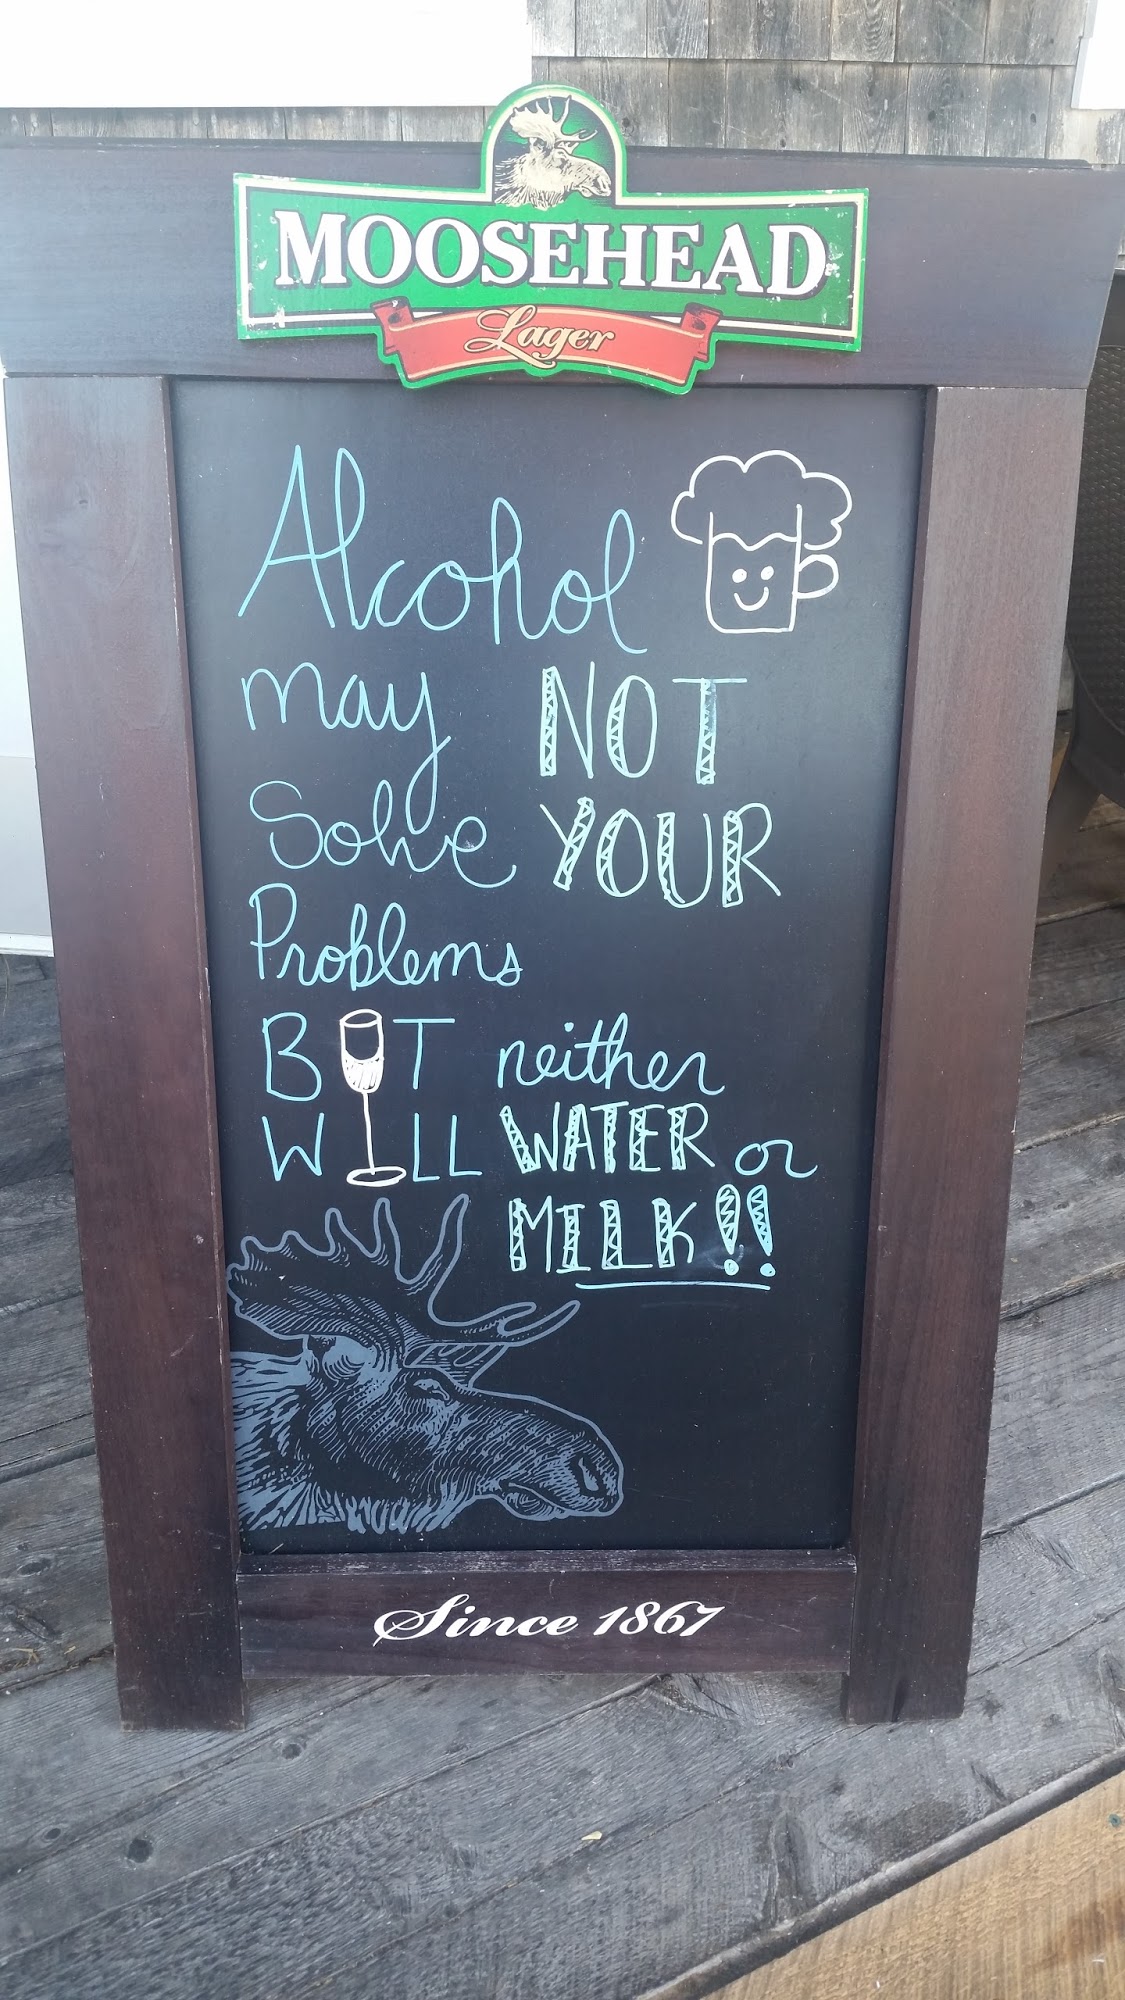 MOOSEHEAD
Lager
Alcohol
may NOT
Solve YOUR
Problems
BUT neither
WILL WATER or
MILK!!
Since 1867